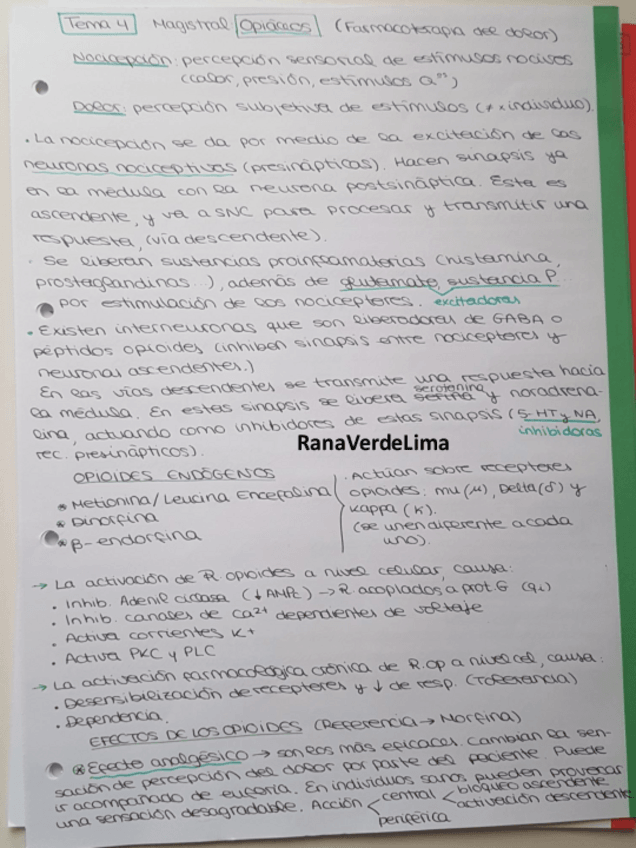 Tema 4 Magistral Opiáceos (Farmacoterapia del dolor)
Nocicepción: percepción sensorial de estímulos nocivos
(calor, presión, estímulos qᵒˢ)
Dolor: percepción subjetiva de estímulos (≠ x individuo).
· La nocicepción se da por medio de la excitación de las
neuronas nociceptivas (presinápticas). Hacen sinapsis ya
en la médula con la neurona postsináptica. Esta es
ascendente, y va a SNC para procesar y transmitir una
respuesta, (vía descendente).
· Se liberan sustancias proinflamatorias (histamina,
prostaglandinas...), además de glutamato, sustancia P...
por estimulación de los nociceptores. excitadoras
· Existen interneuronas que son liberadoras de GABA o
péptidos opioides (inhiben sinapsis entre nociceptores y
neuronas ascendentes.)
En las vías descendentes se transmite una respuesta hacia
la médula. En estas sinapsis se libera serotonina y noradrena-
lina, actuando como inhibidores de estas sinapsis (5-HT y NA,
rec. presinápticos). inhibidoras
RanaVerdeLima
OPIOIDES ENDÓGENOS
* Metionina/Leucina Encefalina
* Dinorfina
* β-endorfina
· Actúan sobre receptores
opioides: mu (μ), Delta (δ) y
Kappa (κ).
(se unen diferente a cada
uno).
→ La activación de R opioides a nivel celular, causa:
· Inhib. Adenil ciclasa (↓AMPc) → R acoplados a prot G (Gi)
· Inhib. canales de Ca²⁺ dependientes de voltaje
· Activa corrientes K+
· Activa PKC y PLC
→ La activación farmacológica crónica de R.op a nivel cel, causa:
· Desensibilización de receptores y ↓ de resp. (Tolerancia)
· Dependencia.
EFECTOS DE LOS OPIOIDES (Referencia → Morfina)
* Efecto analgésico → son los más eficaces. Cambian la sen-
sación de percepción del dolor por parte del paciente. Puede
ir acompañado de euforia. En individuos sanos pueden provocar
una sensación desagradable. Acción central bloqueo ascendente
activación descendente
periférica